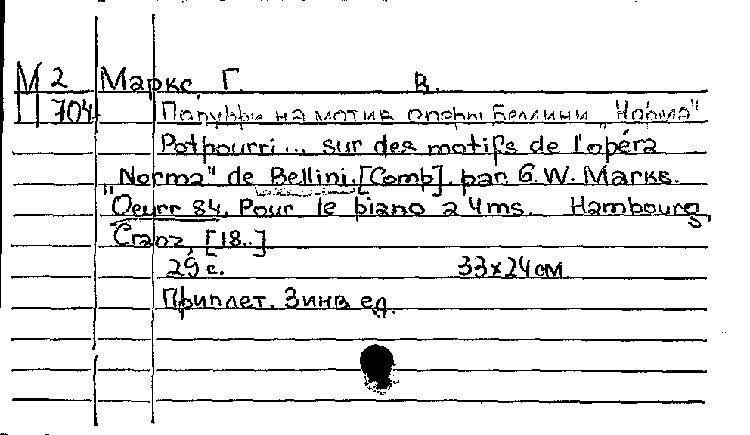 М 2 Маркс, Г. В.
Ц 704 Попурри на мотив оперы Беллини „Норма"
Potpourri... sur des motifs de l'opéra
„Norma" de Bellini. [Comp]. par G. W. Marks.
Oeuvr 84. Pour le piano a 4 ms. Hambourg,
Cranz, [18..]
29 с. 33x24 см
Приплет. 3 инв ед.